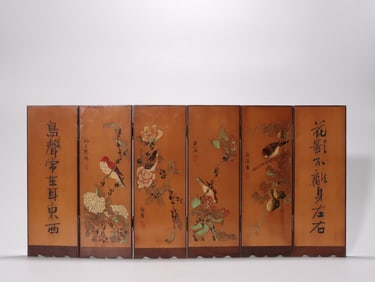 花影不離身左右
鳥聲常在耳東西